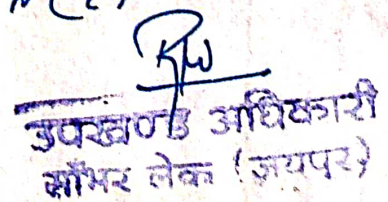 उपखण्ड अधिकारी
साँभर लेक (जयपुर)